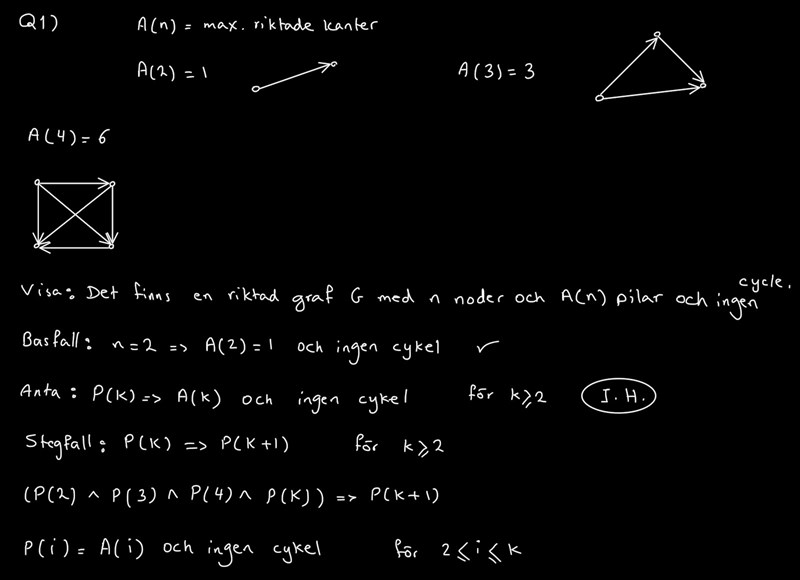 Q1) A(n) = max. riktade kanter
A(2) = 1 A(3) = 3
A(4) = 6
Visa: Det finns en riktad graf G med n noder och A(n) pilar och ingen cycle.
Basfall: n=2 => A(2)=1 och ingen cykel ✓
Anta: P(k) => A(k) och ingen cykel för k≥2 I.H.
Stegfall: P(k) => P(k+1) för k≥2
(P(2) ∧ P(3) ∧ P(4) ∧ P(k)) => P(k+1)
P(i) = A(i) och ingen cykel för 2 ≤ i ≤ k